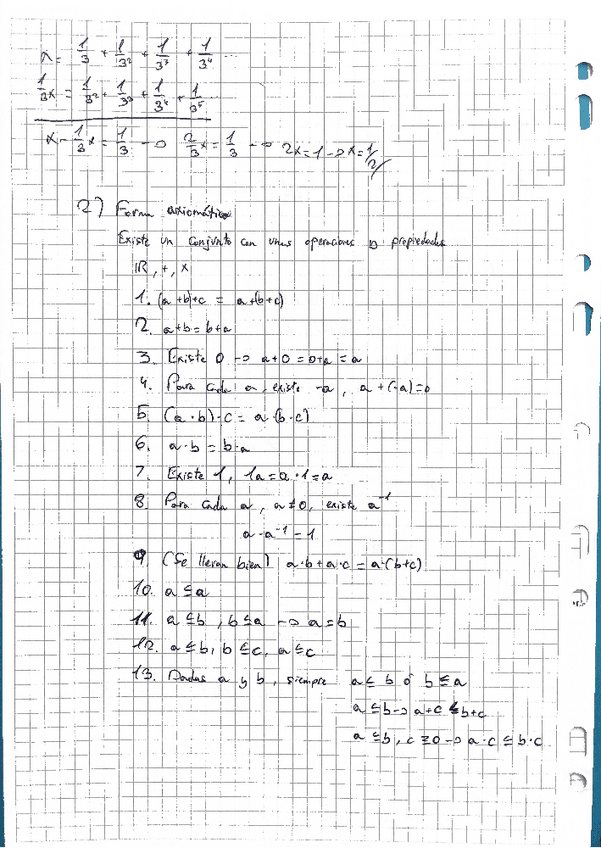 x = 1/3 + 1/3² + 1/3³ + 1/3⁴ ...
1/3 x = 1/3² + 1/3³ + 1/3⁴ + 1/3⁵
x - 1/3 x = 1/3 → 2/3 x = 1/3 → 2x = 1 → x = 1/2
2) Forma axiomática
Existe un conjunto con unas operaciones y propiedades
ℝ, +, ×
1. (a+b)+c = a+(b+c)
2. a+b = b+a
3. Existe 0 → a+0 = 0+a = a
4. Para cada a, existe -a, a+(-a)=0
5. (a·b)·c = a·(b·c)
6. a·b = b·a
7. Existe 1, 1a = a·1 = a
8. Para cada a, a≠0, existe a⁻¹
a·a⁻¹ = 1
9. (Se llevan bien) a·b + a·c = a·(b+c)
10. a ≤ a
11. a ≤ b, b ≤ a → a = b
12. a ≤ b, b ≤ c, a ≤ c
13. Dados a y b, siempre a ≤ b ó b ≤ a
a ≤ b → a+c ≤ b+c
a ≤ b, c ≥ 0 → a·c ≤ b·c